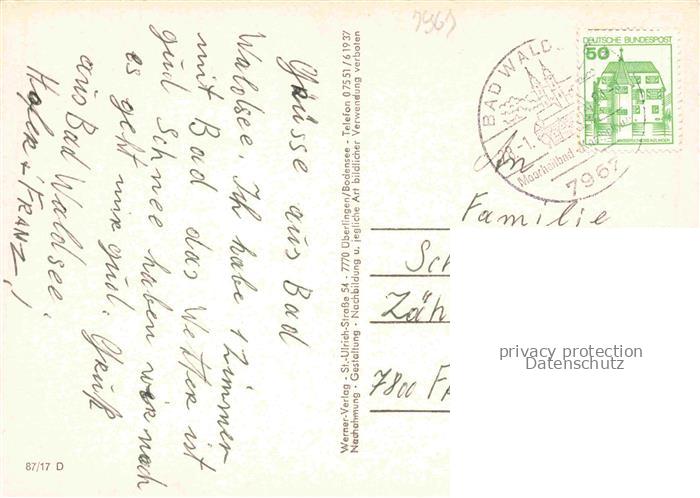 7967
Grüsse aus Bad
Waldsee. Ich habe 1 Zimmer
mit Bad das Wetter ist
gud Schnee haben wir noch
es geht mir gud. Gruß
aus Bad Waldsee.
+ FRANZ!
87/17 D
Werner-Verlag - St.-Ulrich-Straße 54 - 7770 Überlingen/Bodensee - Telefon 07551/61937
Nachahmung - Gestaltung - Nachbildung u. jegliche Art bildlicher Verwendung verboten
BAD WALD
7967
DEUTSCHE BUNDESPOST
50
An
Familie
Sch
Zäh
7800 F
privacy protection
Datenschutz